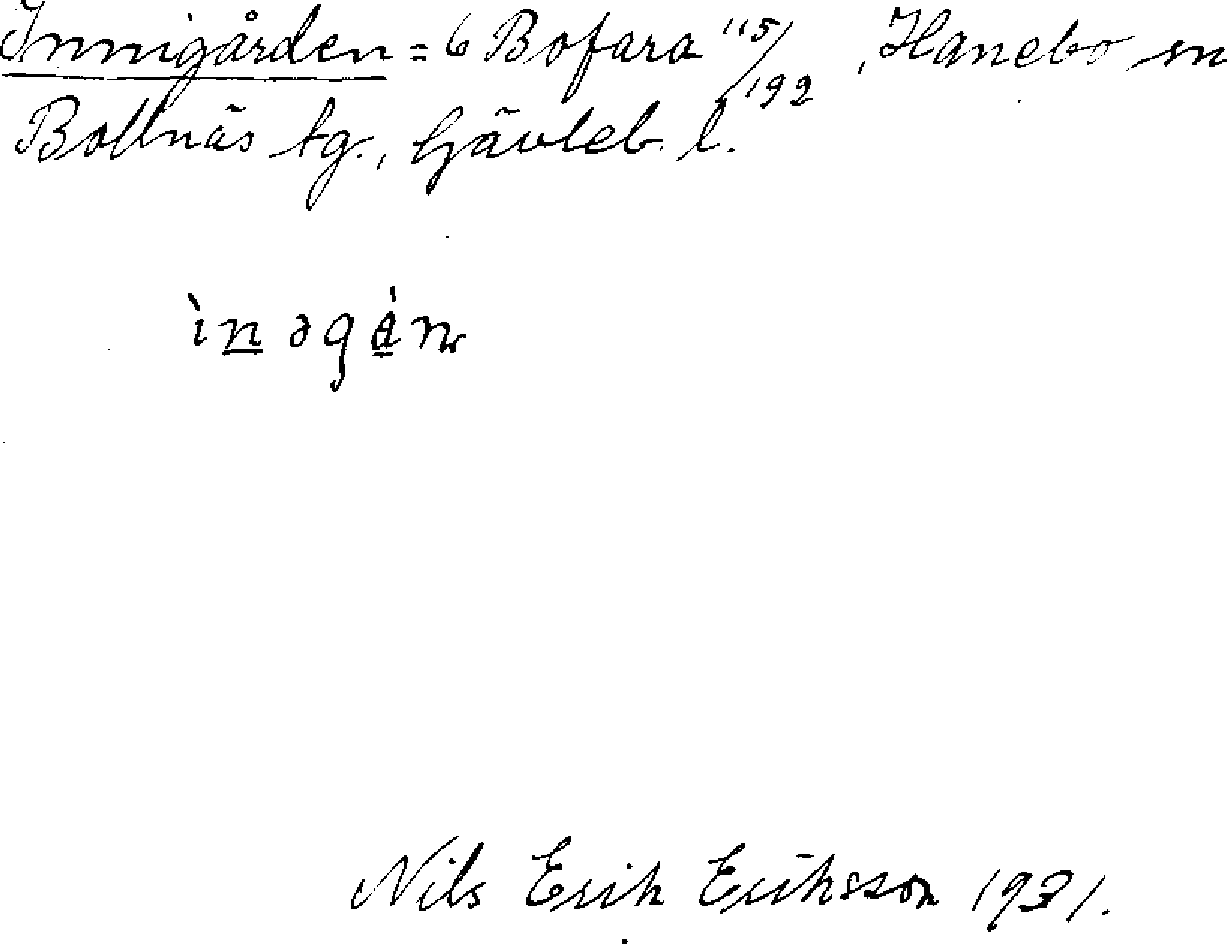 Innigården = 6 Bofara 115/192, Hanebo sn
Bollnäs tg., Gävleb. l.
ìn əgȧn
Nils Erik Eriksson 1931.